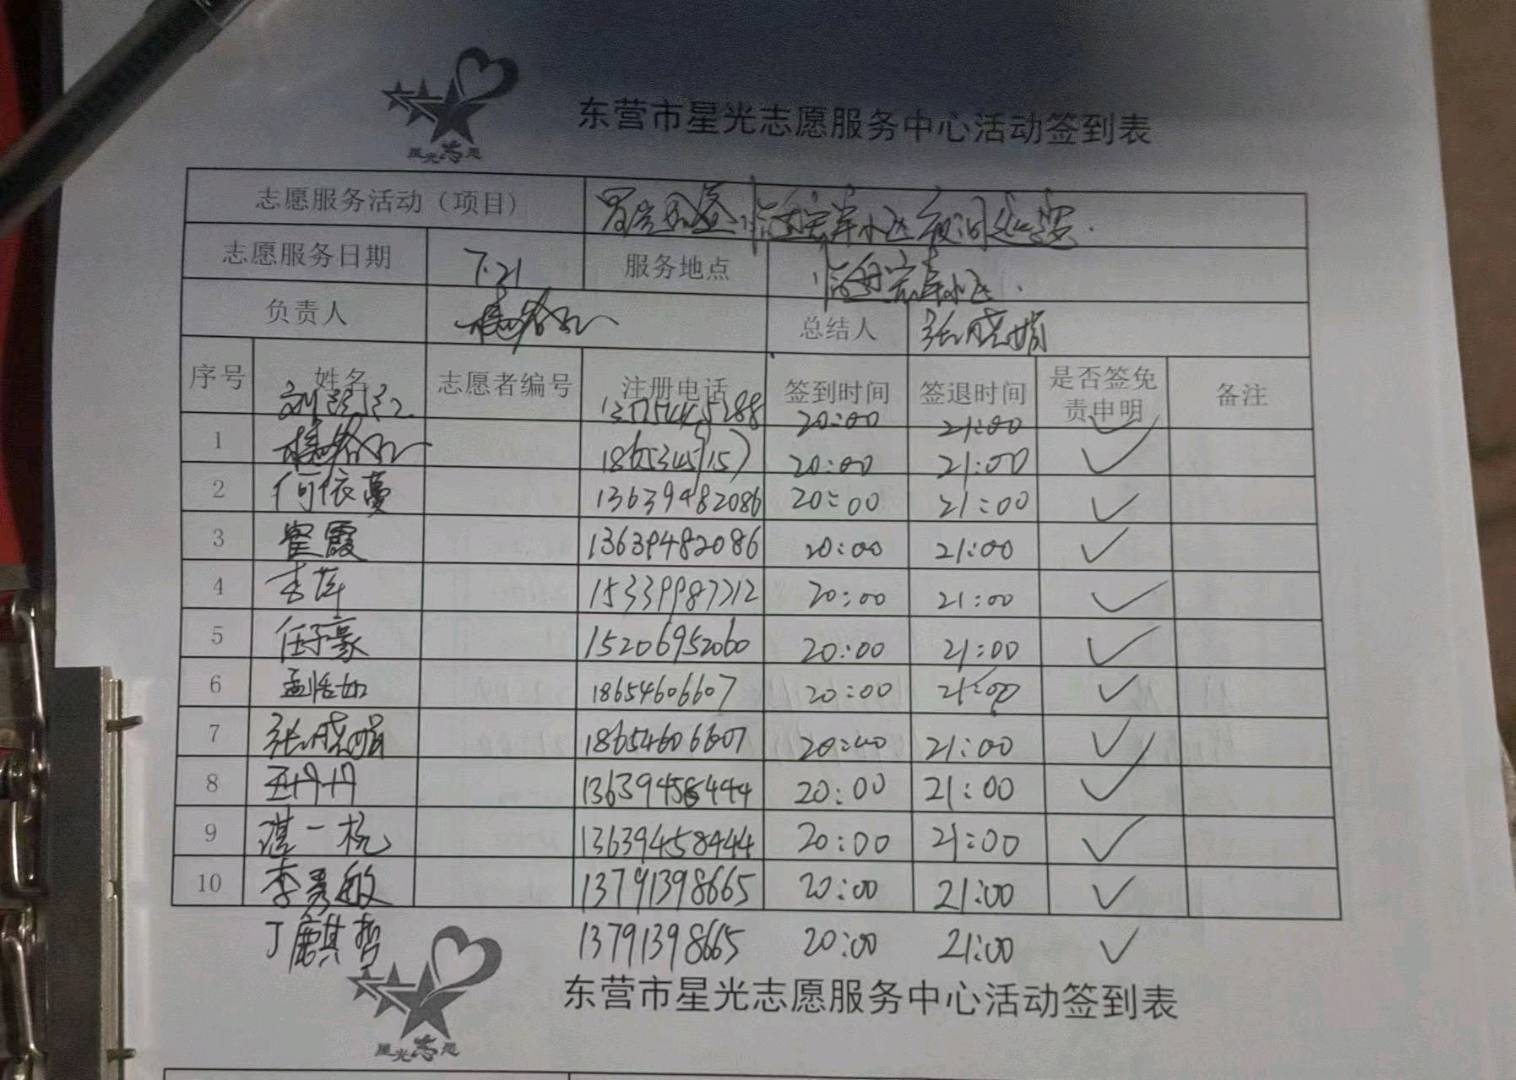 星光志愿
东营市星光志愿服务中心活动签到表
志愿服务活动（项目） 夜间巡逻
志愿服务日期 7.21 服务地点
负责人 总结人 张晓娟
序号 姓名 志愿者编号 注册电话 签到时间 签退时间 是否签免责申明 备注
20:00 21:00 ✓
1 20:00 21:00 ✓
2 何依蔓 13639482086 20:00 21:00 ✓
3 霞 13639482086 20:00 21:00 ✓
4 李萍 15339987212 20:00 21:00 ✓
5 任子豪 15206952060 20:00 21:00 ✓
6 18654606607 20:00 21:00 ✓
7 张晓娟 18654606607 20:00 21:00 ✓
8 王丹丹 13639458444 20:00 21:00 ✓
9 湛一杭 13639458444 20:00 21:00 ✓
10 李秀敏 13791398665 20:00 21:00 ✓
丁麒哲 13791398665 20:00 21:00 ✓
东营市星光志愿服务中心活动签到表
星光志愿